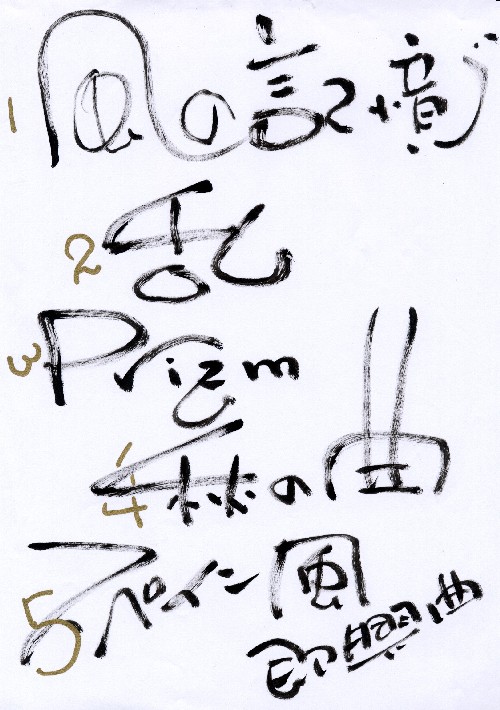 1 風の記憶
2 乱
3 Prizm
4 森の曲
5 スペイン風
即興曲